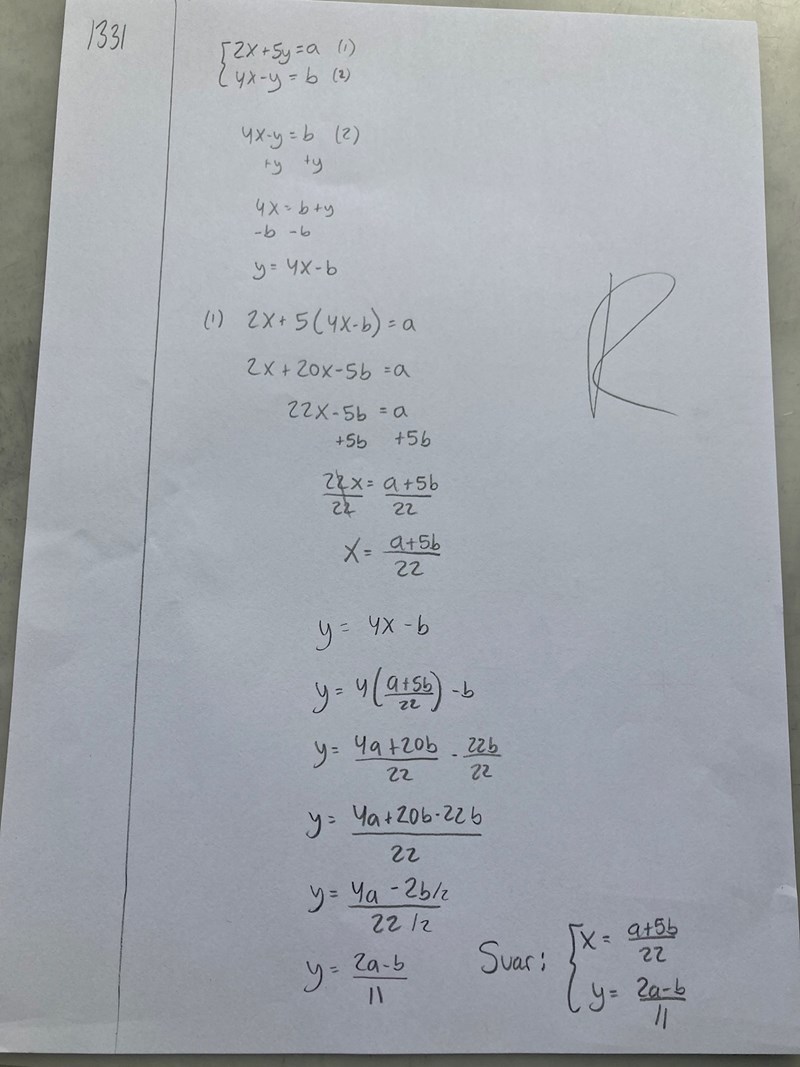 1331
2x+5y=a (1)
4x-y=b (2)
4x-y=b (2)
+y +y
4x=b+y
-b -b
y=4x-b
(1) 2x+5(4x-b)=a
2x+20x-5b=a
22x-5b=a
+5b +5b
22x/22=a+5b/22
x=a+5b/22
y=4x-b
y=4(a+5b/22)-b
y=4a+20b/22-22b/22
y=4a+20b-22b/22
y=4a-2b/2
22/2
y=2a-b/11
Svar: {x=a+5b/22
y=2a-b/11
R